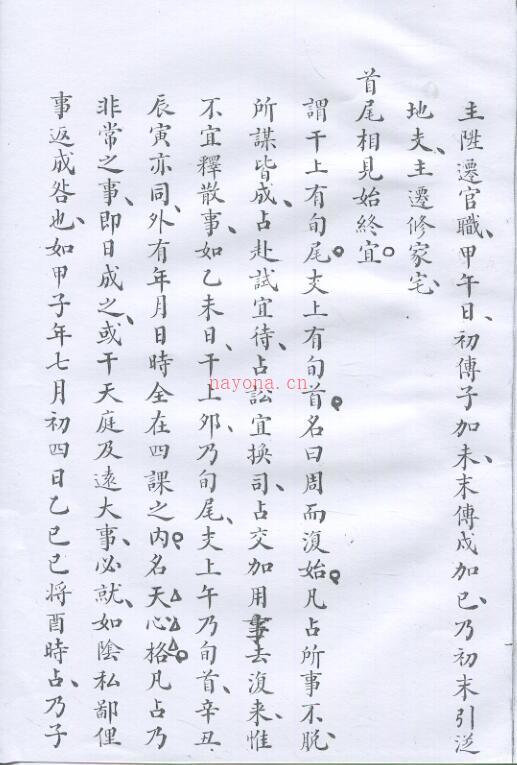 主陞遷官職、甲午日、初傳子加未、末傳戌加巳、乃初末引從
地支、主遷修家宅、
首尾相見始終宜
謂干上有旬尾支上有旬首名曰周而復始凡占所事不脫、
所謀皆成、占赴試宜待、占訟宜換司、占交加用事去復来、惟
不宜釋散事、如乙未日、干上夘乃旬尾、支上午乃旬首、辛丑
辰寅亦同、外有年月日時全在四課之内名天心格凡占乃
非常之事、即日成之、或干天庭及遠大事、必就、如陰私鄙俚
事返成咎也、如甲子年七月初四日乙巳巳将酉時占、乃子
nayona.cn